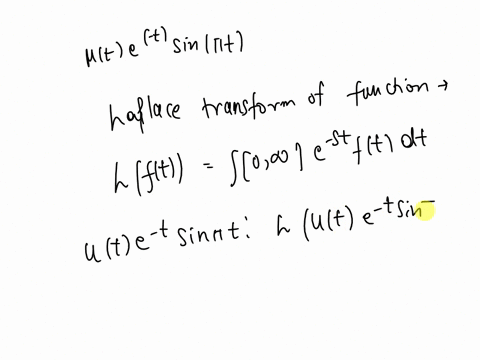 μ(t) e^(-t) sin(πt)
Laplace transform of function →
L(f(t)) = ∫[0,∞] e^-st f(t) dt
u(t) e^-t sinπt: L (u(t) e^-t sin